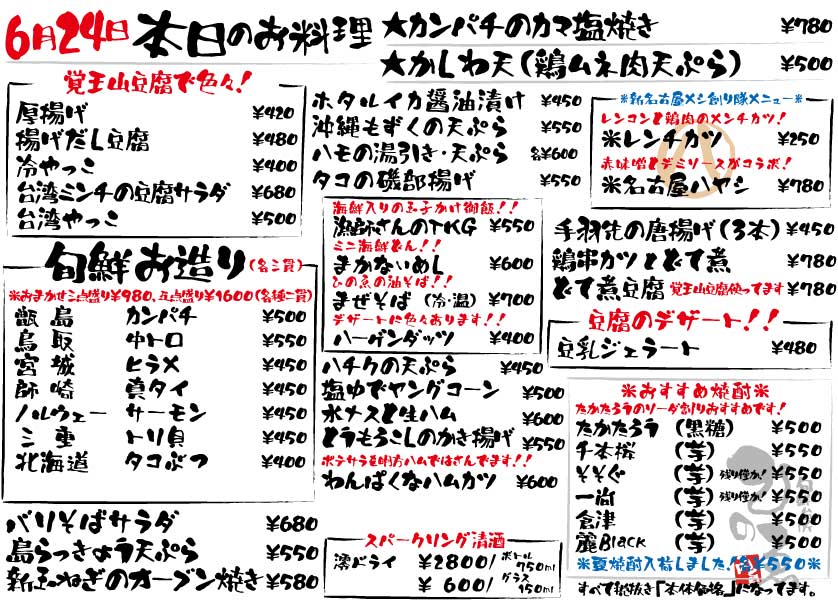 6月24日 本日のお料理
★カンパチのカマ塩焼き ¥780
★かしわ天(鶏ムネ肉天ぷら) ¥500
覚王山豆腐で色々!
厚揚げ ¥420
揚げだし豆腐 ¥480
冷やっこ ¥400
台湾ミンチの豆腐サラダ ¥680
台湾やっこ ¥500
旬鮮お造り(各三貫)
※おまかせ三点盛り¥980、五点盛り¥1600(各種二貫)
甑島 カンパチ ¥500
鳥取 中トロ ¥550
宮城 ヒラメ ¥450
師崎 真タイ ¥450
ノルウェー サーモン ¥450
三重 トリ貝 ¥450
北海道 タコぶつ ¥400
バリそばサラダ ¥680
島らっきょう天ぷら ¥550
新玉ねぎのオーブン焼き ¥580
ホタルイカ醤油漬け ¥450
沖縄もずくの天ぷら ¥550
ハモの湯引き・天ぷら 各¥600
タコの磯部揚げ ¥550
海鮮入りの玉子かけ御飯!!
漁師さんのTKG ¥550
ミニ海鮮どん!!
まかないめし ¥600
ひのゑの油そば!!
まぜそば(冷・温) ¥700
デザートに色々あります!!
ハーゲンダッツ ¥400
ハチクの天ぷら ¥450
塩ゆでヤングコーン ¥500
水ナスと生ハム ¥600
とうもろこしのかき揚げ ¥550
ポテサラを味方ハムではさんでます!!
わんぱくなハムカツ ¥600
スパークリング清酒
澪ドライ ¥2800/ボトル750ml
¥600/グラス150ml
※新名古屋メシ創り隊メニュー※
レンコンと鶏肉のメンチカツ!
※レンチカツ ¥250
赤味噌とデミソースがコラボ!
※名古屋ハヤシ ¥780
手羽先の唐揚げ(3本) ¥450
鶏串カツとどて煮 ¥780
どて煮豆腐 覚王山豆腐使ってます ¥780
豆腐のデザート!!
豆乳ジェラート ¥480
※おすすめ焼酎※
たかたろうのソーダ割りおすすめです!
たかたろう (黒糖) ¥500
千本桜 (芋) ¥550
そそぐ (芋) 残り僅か! ¥550
一尚 (芋) 残り僅か! ¥550
倉津 (芋) ¥500
麗Black (芋) ¥500
※夏焼酎入荷しました!各¥550※
すべて税抜き「本体価格」になってます。